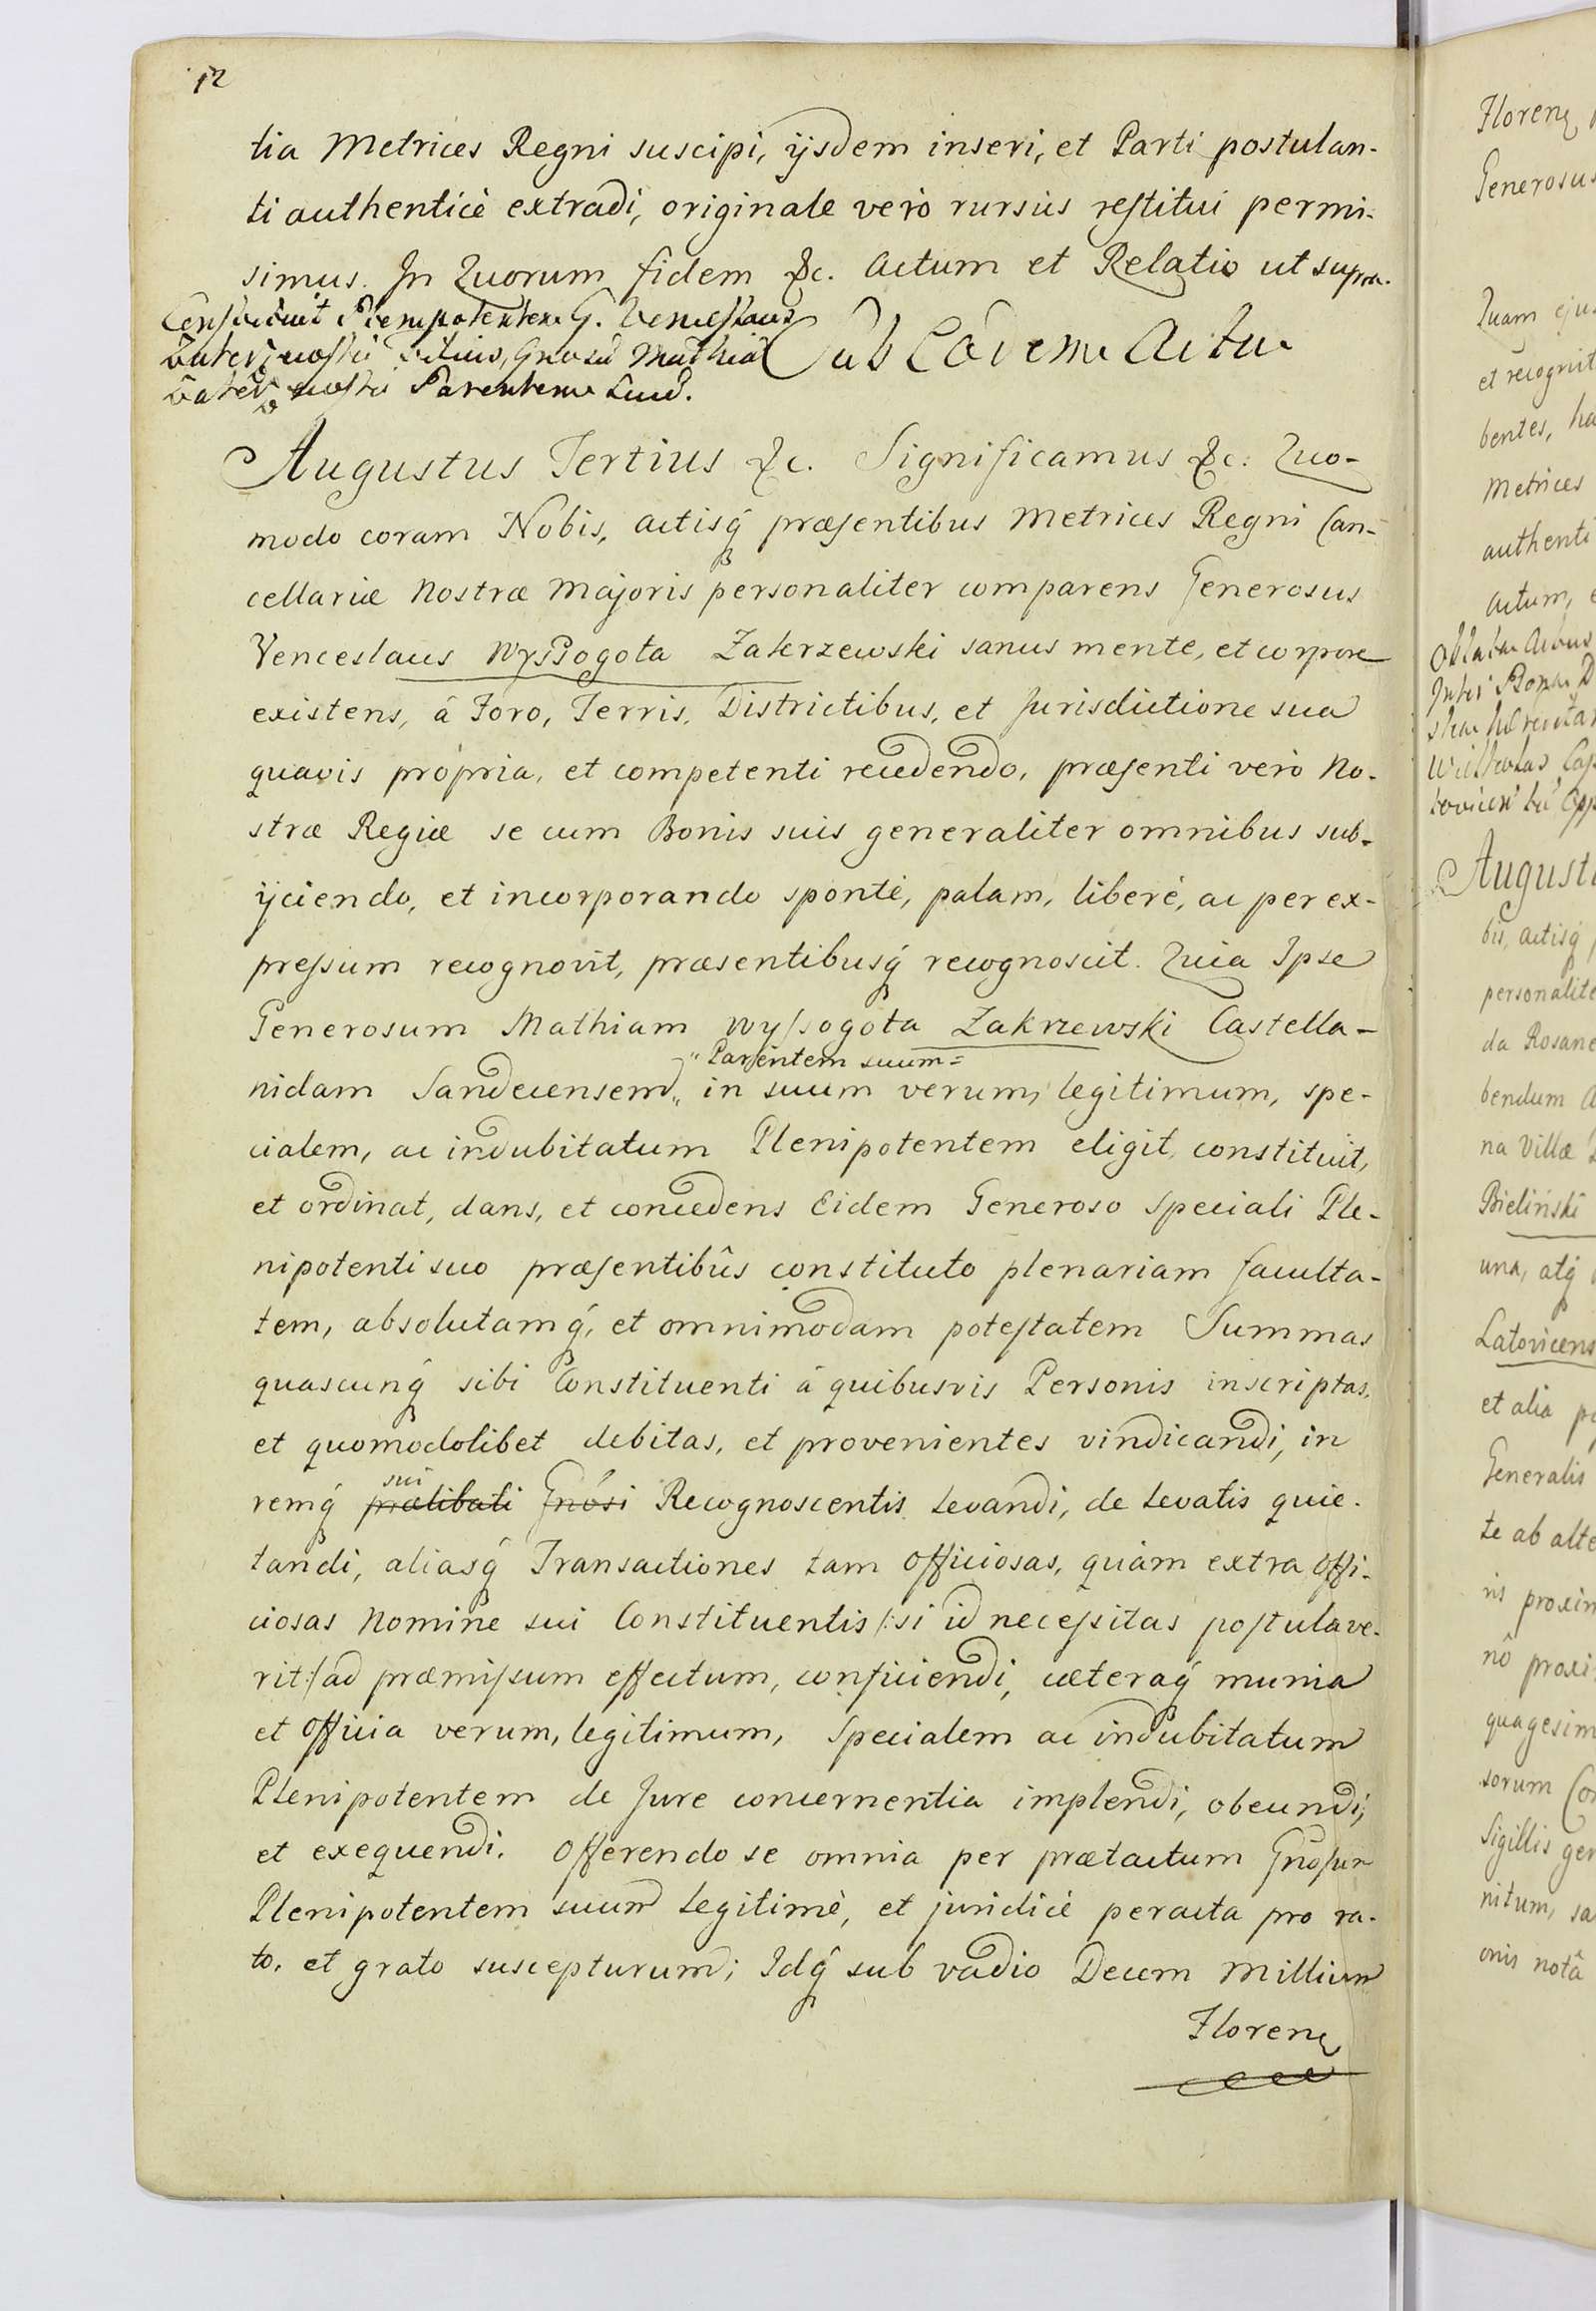 12
tia Metrices Regni suscipi, ijsdem inseri, et Parti postulan-
ti authenticè extradi, originale verò rursùs restitui permi-
simus. In Quorum fidem &c. Actum et Relatio ut supra.
Constituit Plenipotentem G. Venceslaus
Filius, Gnosũ Mathiã
Parentem suũ.
Sub Eodem Actu
Augustus Tertius &c. Significamus &c: Quo-
modo coram Nobis, actisq́ præsentibus Metrices Regni Can-
cellariæ Nostræ Majoris personaliter comparens Generosus
Venceslaus Wyssogota Zakrzewski sanus mente, et corpore
existens, â Foro, Terris, Districtibus, et Jurisdictione sua
quavis própria, et competenti recedendo, præsenti verò No-
stræ Regiæ se cum Bonis suis generaliter omnibus sub-
ijciendo, et incorporando spontè, palam, liberè, ac per ex-
pressum recognovit, præsentibusq́ recognoscit. Quia Ipse
Generosum Mathiam Wyssogota Zakrzewski Castella-
" Parentem suum =
nidam Sandecensem „ in suum verum, legitimum, spe-
cialem, ac indubitatum Plenipotentem eligit, constituit,
et ordinat, dans, et concedens Eidem Generoso Speciali Ple-
nipotenti suo præsentibûs constituto plenariam faculta-
tem, absolutamq́, et omnimodam potestatem Summas
quascunq́ sibi Constituenti â quibusvis Personis inscriptas,
et quomodolibet debitas, et provenientes vindicandi, in
sui
remq́ prælibati Gnósi Recognoscentis levandi, de levatis quie-
tandi, aliasq́ Transactiones tam Officiosas, quàm extra Offi-
ciosas Nomine sui Constituentis /:si id necessitas postulave-
rit:/ ad præmissum effectum, conficiendi, cæteraq́ munia
et Officia verum, legitimum, Specialem ac indubitatum
Plenipotentem de Jure concernentia implendi, obeundi,
et exequendi. Offerendo se omnia per prætactum Gnosum
Plenipotentem suum legitimè, et juridicè peracta pro ra-
to, et grato suscepturum; Idq́ sub vadio Decem Millium
Floren
Floren
Generosus
Quam ejus
et recognit
bentes, ha
Metrices
authenti
Actum, e
Augustu
bis, actisq́
personalite
da Rosane
bendum a
na Villæ
Bieliński
una, atq́
Latovicens
et alia
Generalis
te ab alte
ris proxim
nô proxi
quagesim
sorum Co
Sigillis ger
nitum, sa
onis notâ